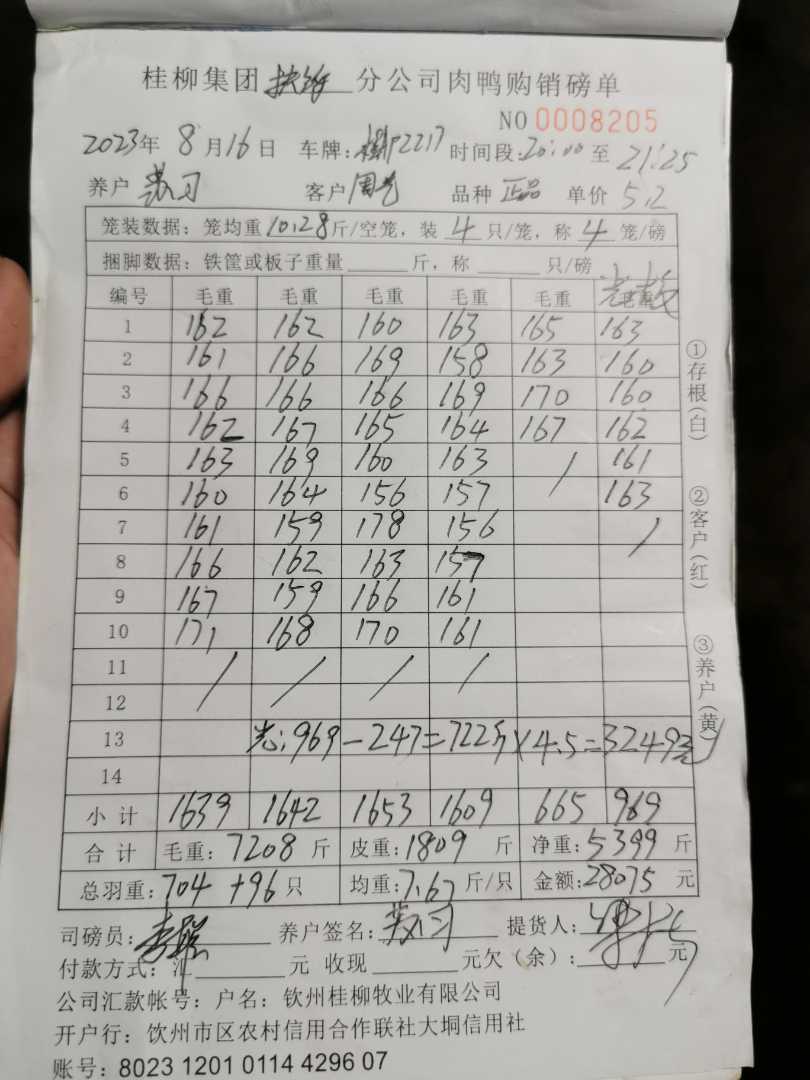 桂柳集团 分公司肉鸭购销磅单
NO 0008205
2023年 8月16日 车牌: P2217 时间段:20:00至21:25
养户 苏习 客户 周 品种 正品 单价 5.2
笼装数据: 笼均重10.28斤/空笼, 装 4 只/笼, 称 4 笼/磅
捆脚数据: 铁筐或板子重量 斤, 称 只/磅
编号 毛重 毛重 毛重 毛重 毛重 毛重
1 162 162 160 163 165 163
2 161 166 169 158 163 160
3 166 166 166 169 170 160
4 162 167 165 164 167 162
5 163 169 160 163 / 161
6 160 164 156 157 163
7 161 159 178 156 /
8 166 162 163 157
9 167 159 166 161
10 171 168 170 161
11 / / / /
12
13 :969-247=722斤×4.5=3249元
14
小计 1639 1642 1653 1609 665 969
合计 毛重: 7208 斤 皮重: 1809 斤 净重: 5399 斤
总羽重: 704 +96 只 均重: 7.67 斤/只 金额: 28075 元
司磅员: 养户签名: 苏习 提货人:
付款方式: 汇 元 收现 元欠(余): 元
公司汇款帐号: 户名: 钦州桂柳牧业有限公司
开户行: 饮州市区农村信用合作联社大垌信用社
账号: 8023 1201 0114 4296 07
①存根(白)
②客户(红)
③养户(黄)